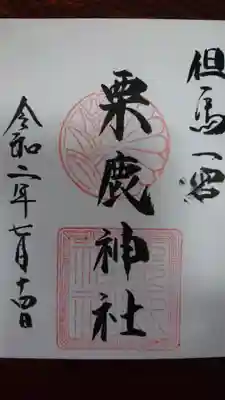 但馬一宮
粟鹿神社
令和二年七月十四日